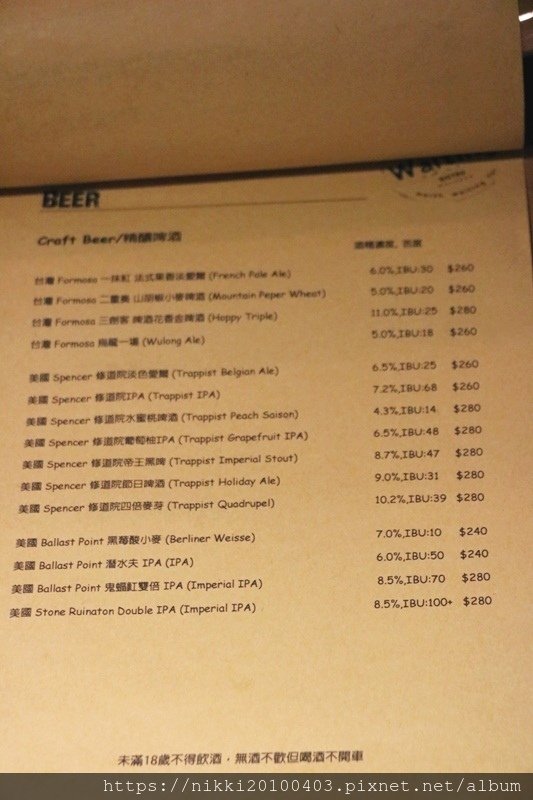 BEER
Craft Beer/精釀啤酒
酒精濃度, 苦度
台灣 Formosa 一抹紅 法式果香淡愛爾 (French Pale Ale) 6.0%,IBU:30 $260
台灣 Formosa 二重奏 山胡椒小麥啤酒 (Mountain Peper Wheat) 5.0%,IBU:20 $260
台灣 Formosa 三劍客 啤酒花香金啤酒 (Hoppy Triple) 11.0%,IBU:25 $280
台灣 Formosa 烏龍一場 (Wulong Ale) 5.0%,IBU:18 $260
美國 Spencer 修道院淡色愛爾 (Trappist Belgian Ale) 6.5%,IBU:25 $260
美國 Spencer 修道院IPA (Trappist IPA) 7.2%,IBU:68 $260
美國 Spencer 修道院水蜜桃啤酒 (Trappist Peach Saison) 4.3%,IBU:14 $280
美國 Spencer 修道院葡萄柚IPA (Trappist Grapefruit IPA) 6.5%,IBU:48 $280
美國 Spencer 修道院帝王黑啤 (Trappist Imperial Stout) 8.7%,IBU:47 $280
美國 Spencer 修道院節日啤酒 (Trappist Holiday Ale) 9.0%,IBU:31 $280
美國 Spencer 修道院四倍麥芽 (Trappist Quadrupel) 10.2%,IBU:39 $280
美國 Ballast Point 黑莓酸小麥 (Berliner Weisse) 7.0%,IBU:10 $240
美國 Ballast Point 潛水夫 IPA (IPA) 6.0%,IBU:50 $240
美國 Ballast Point 鬼蝠魟雙倍 IPA (Imperial IPA) 8.5%,IBU:70 $280
美國 Stone Ruinaton Double IPA (Imperial IPA) 8.5%,IBU:100+ $280
未滿18歲不得飲酒，無酒不歡但喝酒不開車
https://nikki20100403.pixnet.net/album